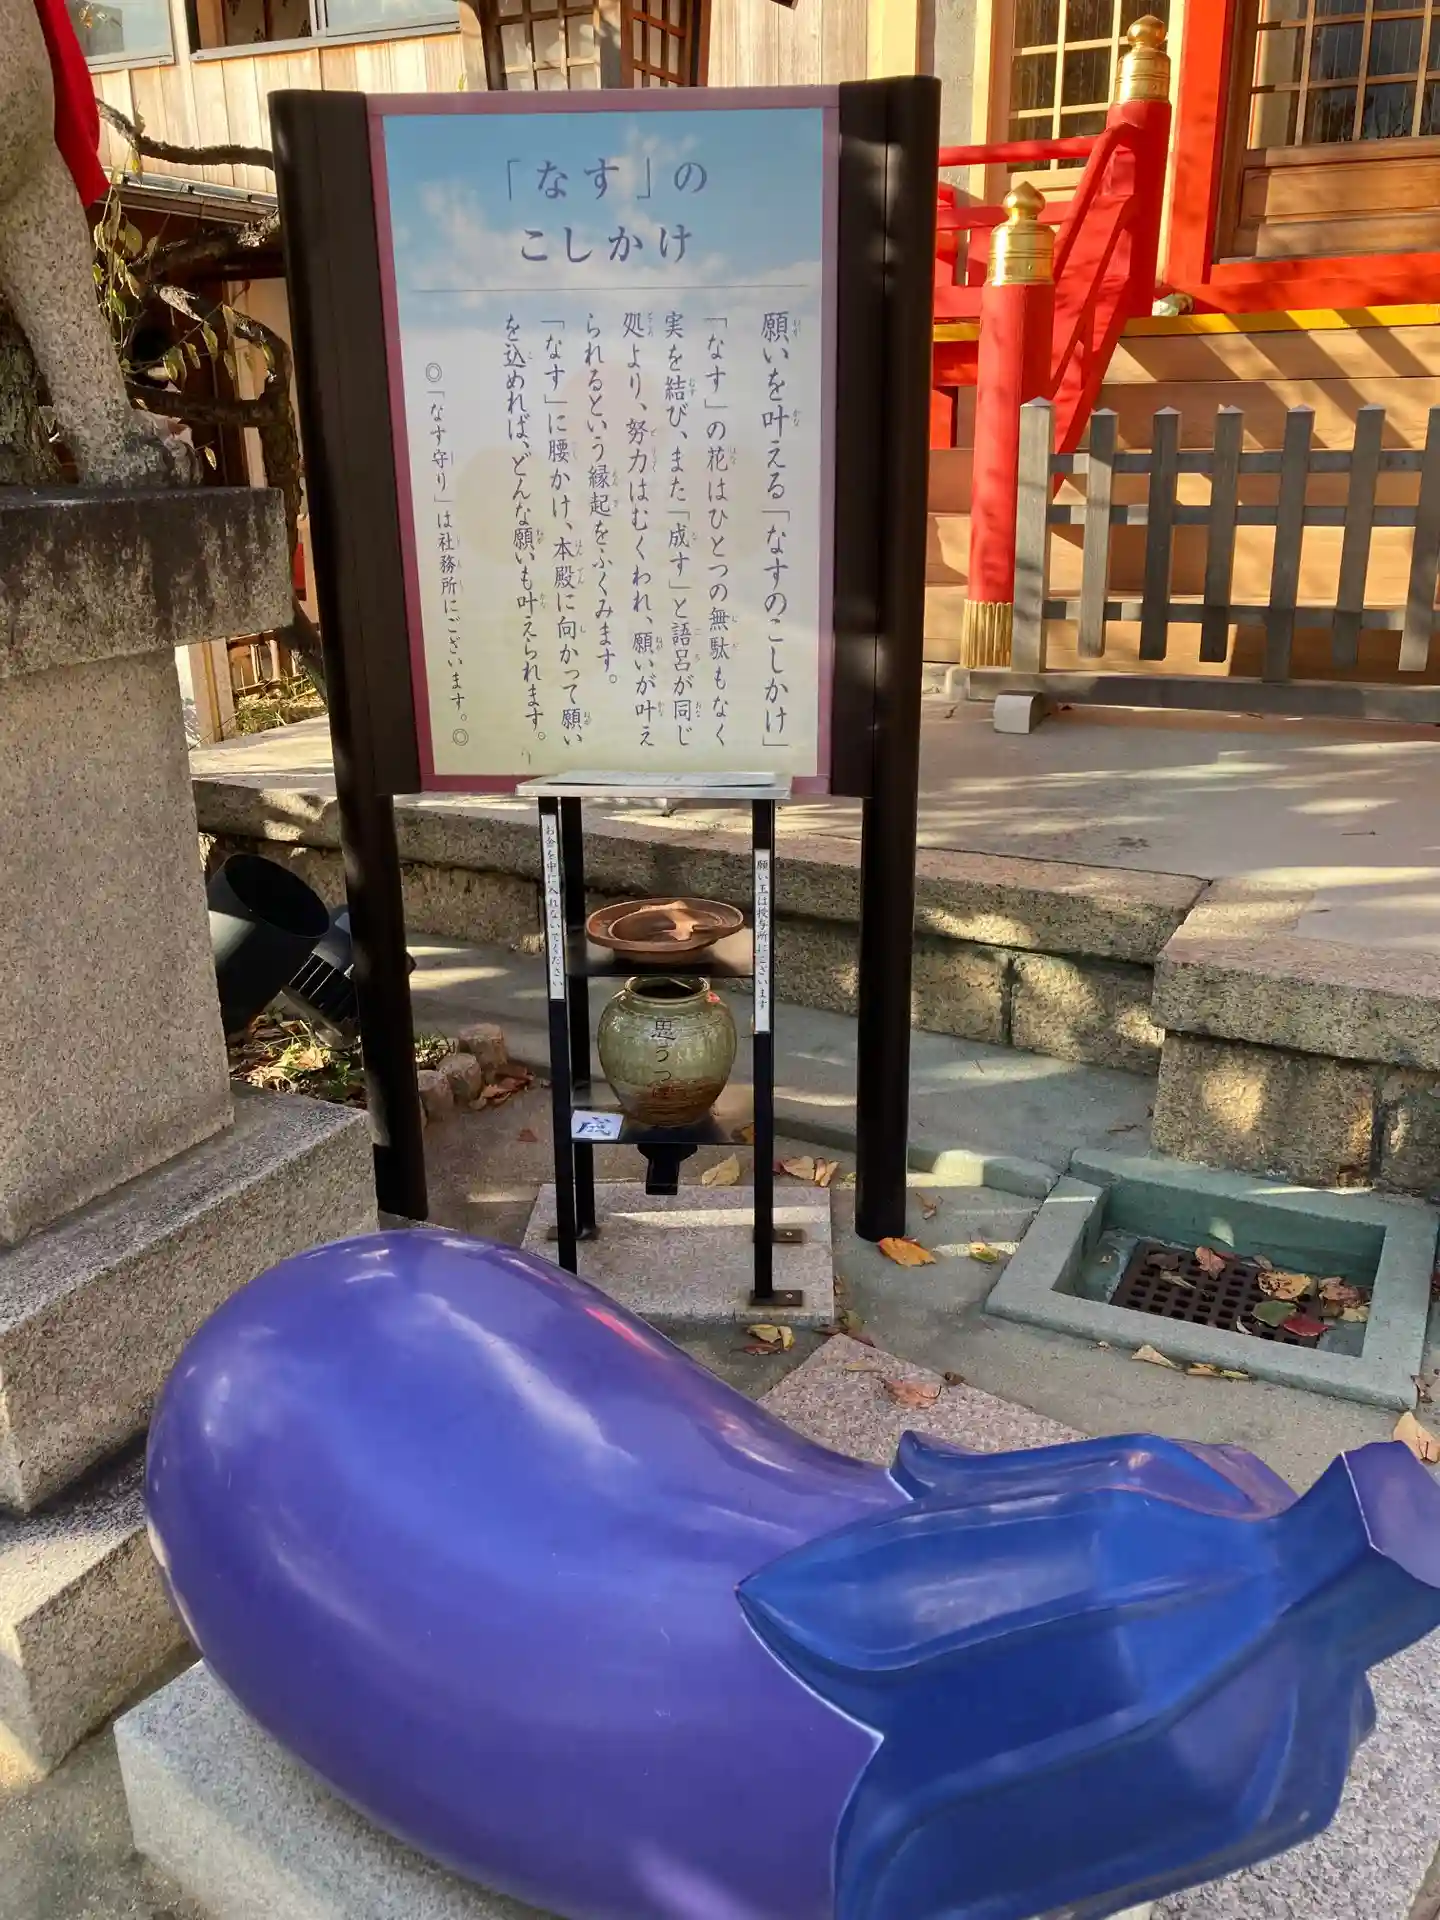 「なす」の
こしかけ
願いを叶える「なすのこしかけ」
「なす」の花はひとつの無駄もなく
実を結び、また「成す」と語呂が同じ
処より、努力はむくわれ、願いが叶え
られるという縁起をふくみます。
「なす」に腰かけ、本殿に向かって願い
を込めれば、どんな願いも叶えられます。
◎「なす守り」は社務所にございます。◎
お金を中に入れないでください
願い玉は授与所にございます
思うつぼ
成